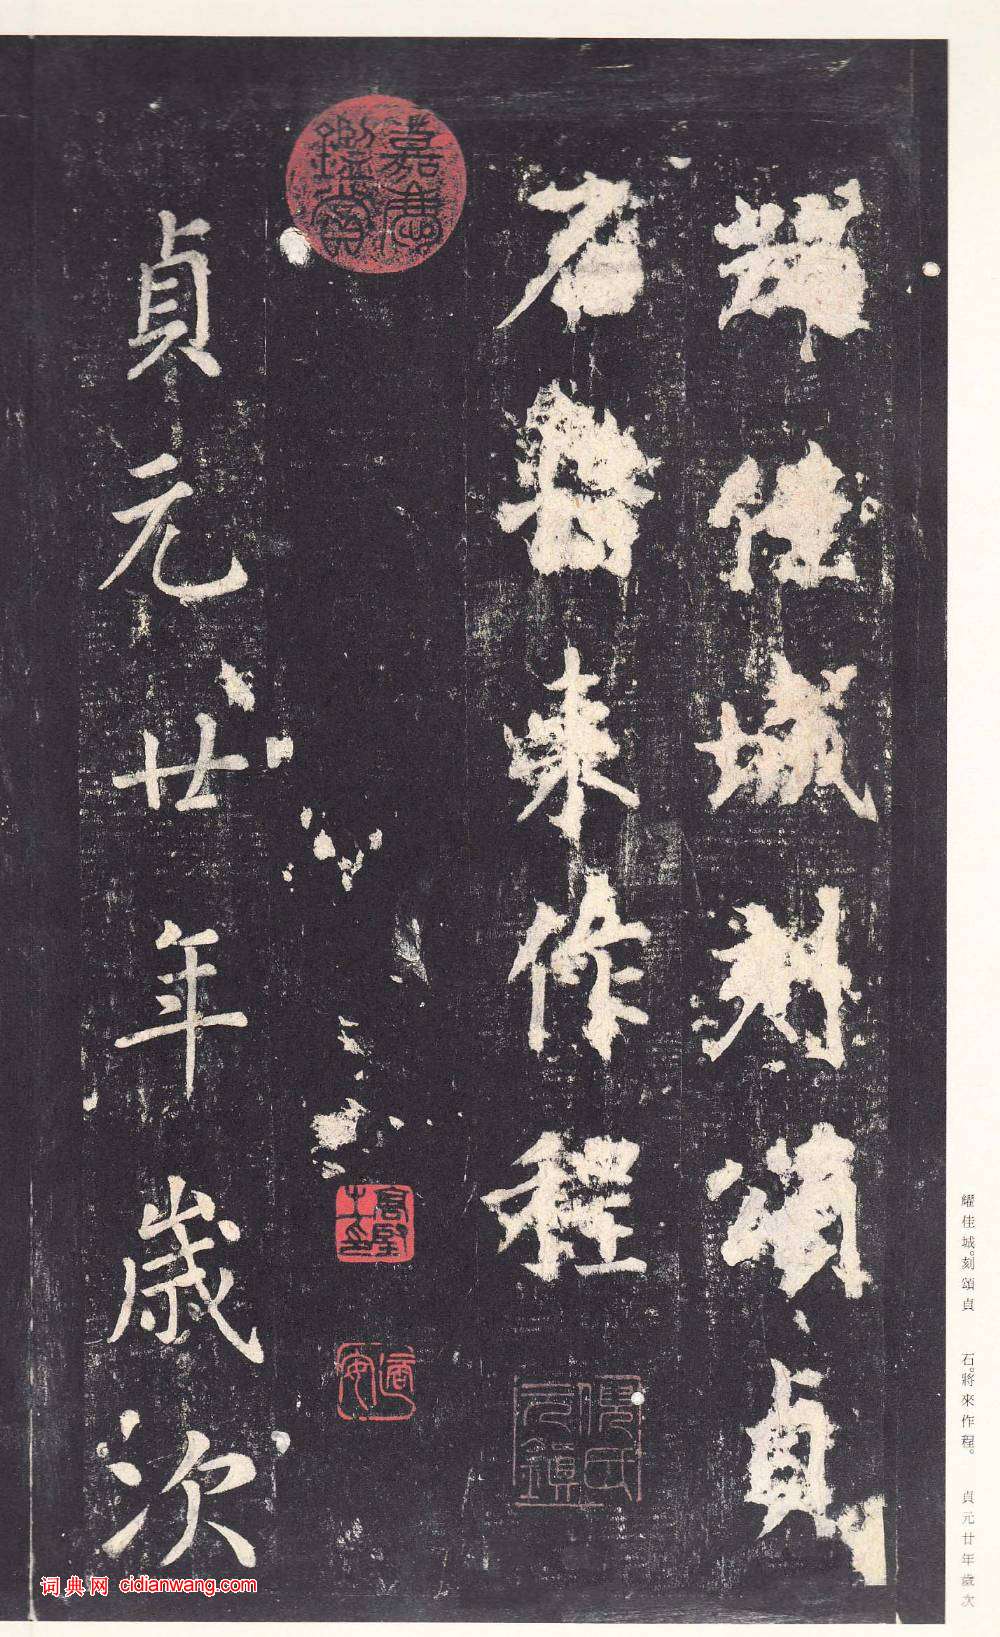 耀佳城刻頌貞
石將來作程
貞元廿年歲次
耀佳城。刻頌貞 石。將來作程。 貞元廿年歲次
词典网 cidianwang.com